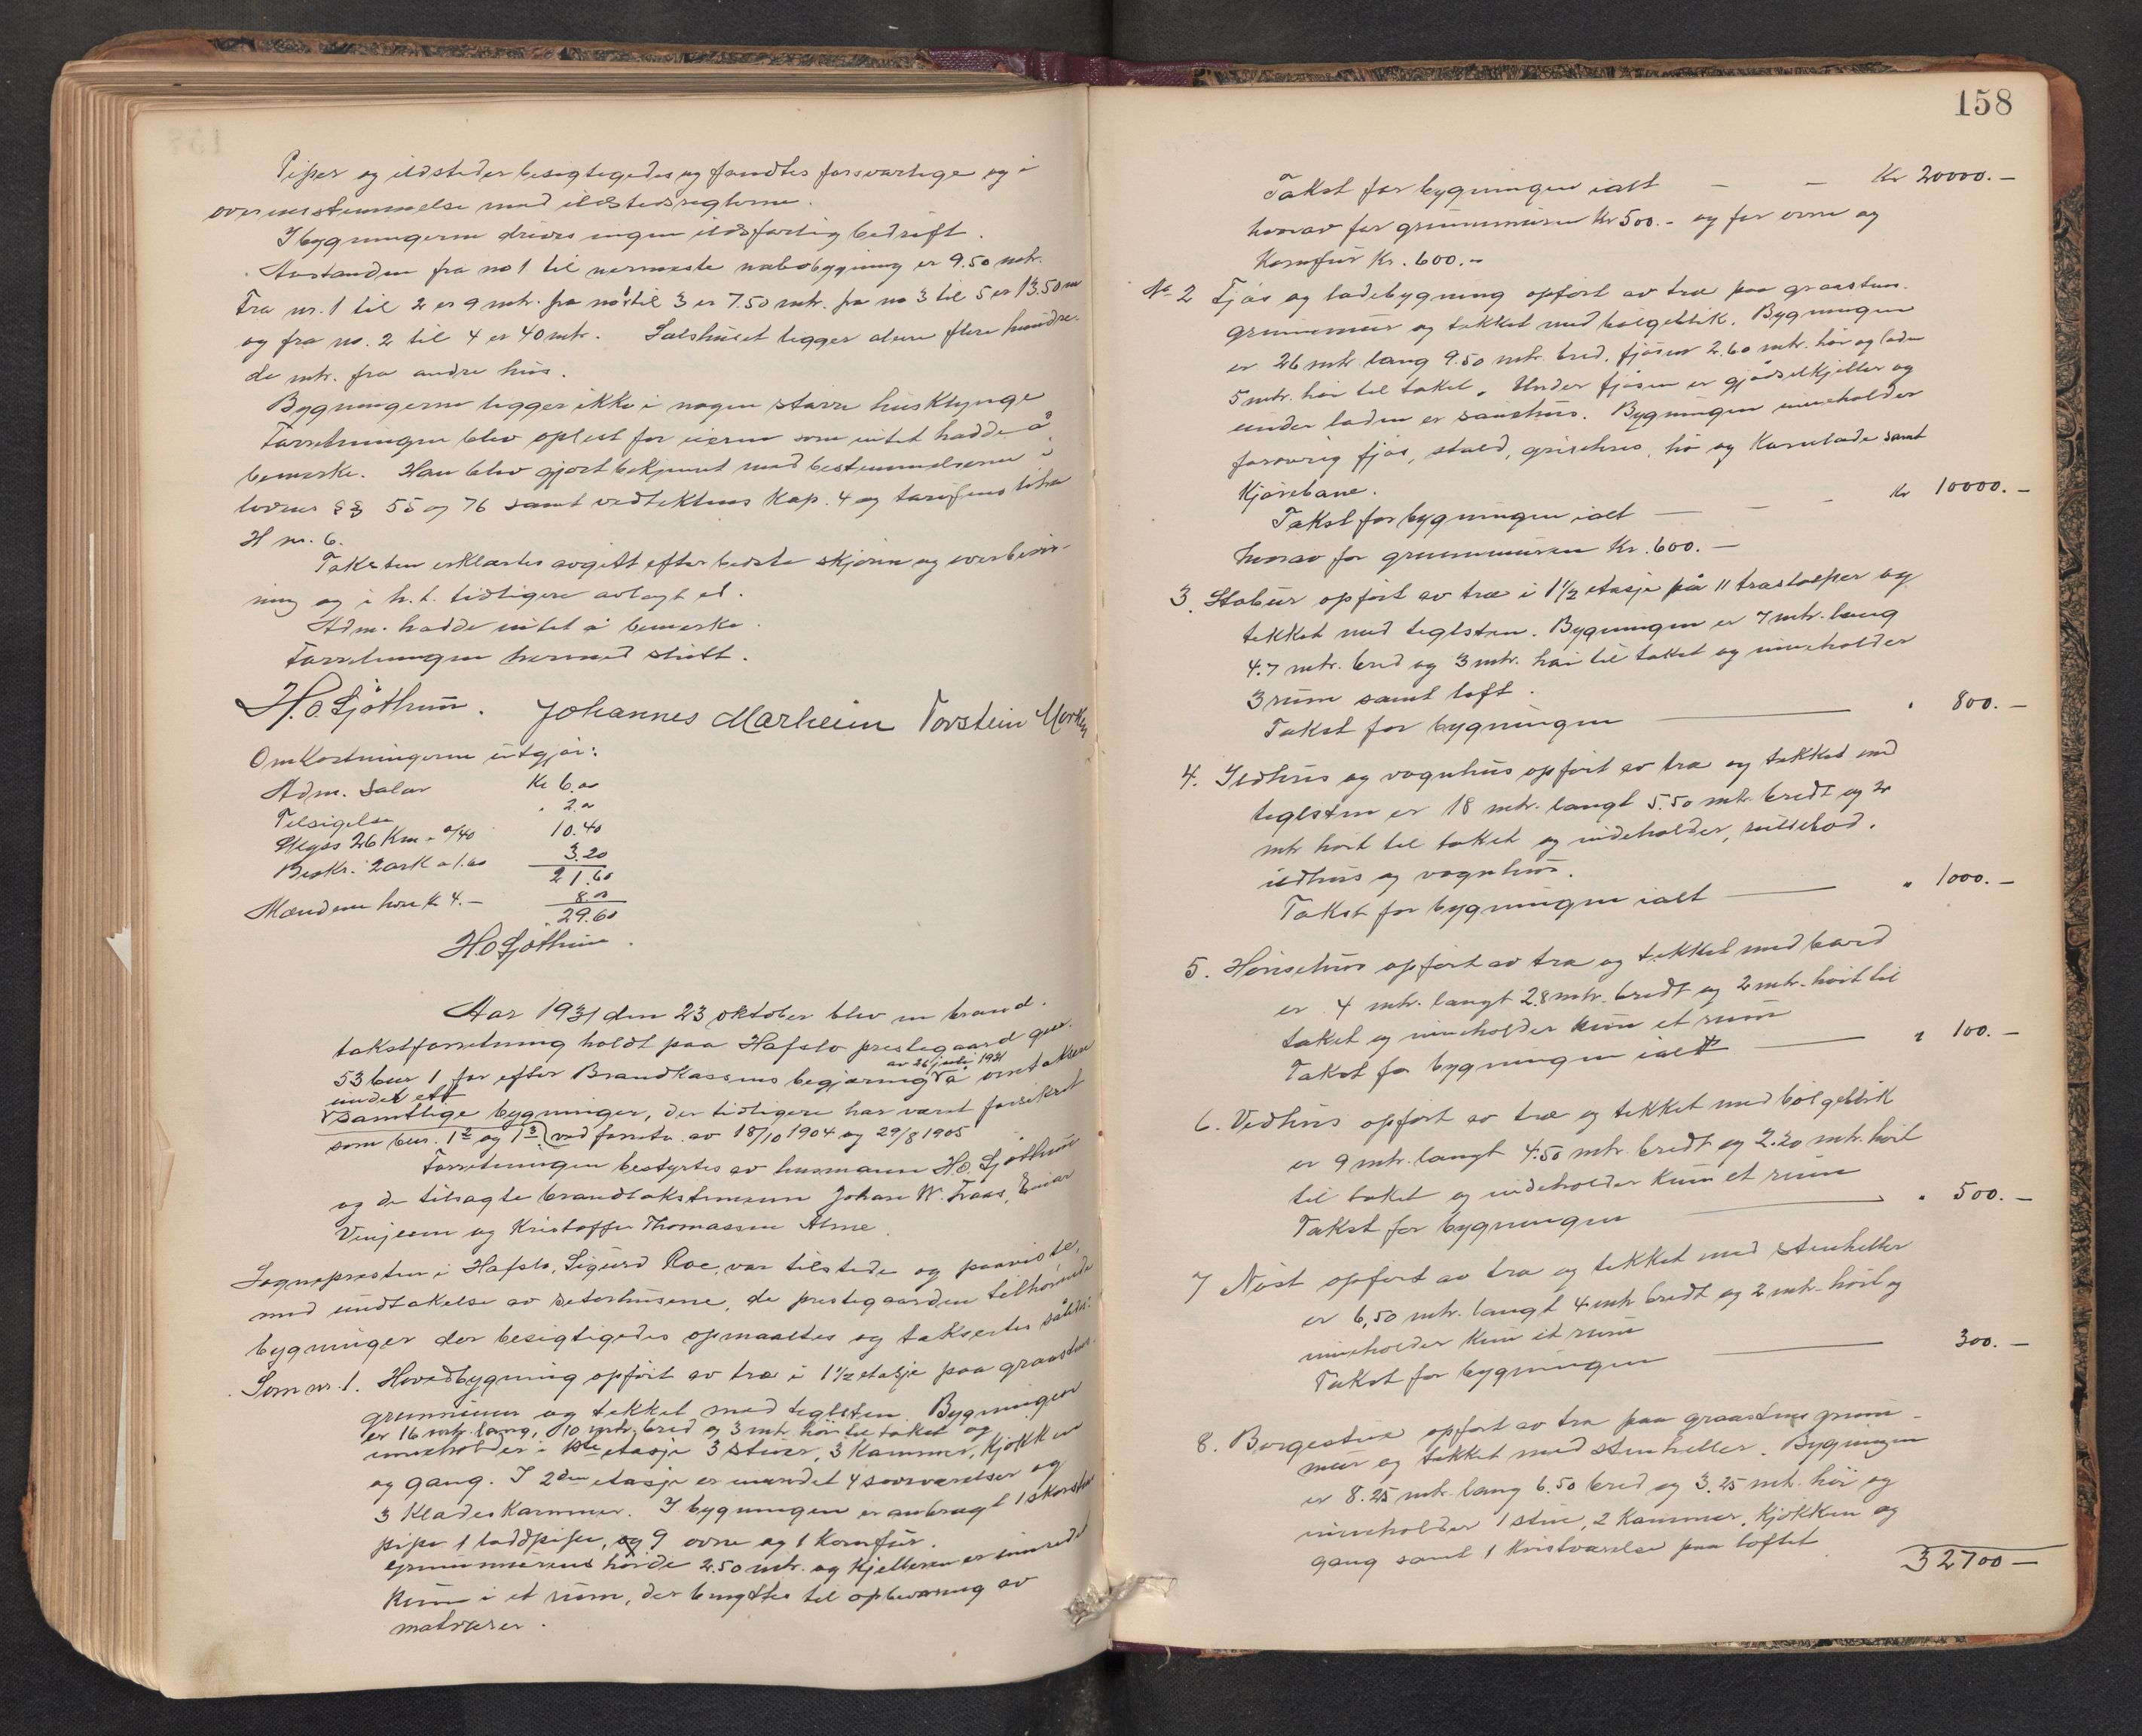 Piper og ildsteder besigtigedes og fandtes forsvarlige og i
overensstemmelse med ildstedsreglerne.
I bygningerne drives ingen ildsfarlig bedrift.
Avstanden fra no 1 til nermeste nabobygning er 9.50 mtr.
Fra nr. 1 til 2 er 9 mtr. fra no 1 til 3 er 7.50 mtr. fra no 3 til 5 er 13.50 m
og fra no. 2 til 4 er 40 mtr. Selshuset ligger alene flere hundre-
de mtr. fra andre hus.
Bygningerne ligger ikke i nogen større husklynge
Forretningen blev oplest for eieren som intet hadde å
bemerke. Han blev gjort bekjennt med bestemmelserne i
lovens §§ 55 og 76 samt vedtektens Kap. 4 og tarifens litra
H nr. 6.
Taksten erklærtes avgitt efter bedste skjønn og overbevis-
ning og i h.t. tidligere avlagt ed.
Adm. hadde intet å bemerke.
Forretningen hermed slutt.
H. O. Sjøthun. Johannes Marheim Torstein
Omkostningerne utgjør:
Adm. Salær Kr 6.00
Tilsigelse " 2.00
Skyss 26 Km a 0/40 10.40
Beskr. 2 ark a 1.60 3.20
21.60
Mændene hver kr 4.— 8.00
29.60
H O Sjøthun.
Aar 1931 den 23 oktober blev en brand-
takstforretning holdt paa Hafslo prestegaard gnr.
53 bnr 1 for efter Brandkassens begjæring av 26 juli 1931 å omtaksere
under ett
samtlige bygninger, der tidligere har været forsikret
som bnr. 1² og 1³ ved forretn. av 18/10 1904 og 29/8 1905
Forretningen bestyrtes av lensmann H. O. Sjøthun
og de tilsagte brandtakstmenn Johan W. Einar
Vinjum og Kristoffer Thomassen Alme.
Sognepresten i Hafslo, Sigurd Roe, var tilstede og paaviste,
med undtakelse av seterhusene, de prestegaarden tilhørende
bygninger der besigtigedes opmaaltes og taksertes således:
Som nr. 1. Hovedbygning opført av træ i 1½ etasje paa graastens-
grunnmur og tekket med teglsten. Bygningen
er 16 mtr. lang, 10 mtr. bred og 3 mtr høi til taket og
inneholder i 1ste etasje 3 stuer, 3 Kammer, Kjøkken
og gang. I 2den etasje er innredet 4 soveværelser og
3 Klædeskammer. I bygningen er anbragt 1 skorstens-
pipe 1 loddpipe, og 9 ovne og 1 Komfur.
Grunnmurens høide 2.50 mtr. og Kjelleren er innredet
Kun i et rum, der benyttes til opbevaring av
matvarer.
158
Takst for bygningen ialt — — Kr 20000.—
hvorav for grunnmuren Kr 500.- og for ovne og
Komfur Kr. 600.-
No 2 Fjøs og ladebygning opført av træ paa graastens-
grunnmur og tekket med bølgeblik. Bygningen
er 26 mtr lang 9.50 mtr. bred, fjøsen 2.60 mtr. høi og laden
5 mtr. høi til taket. Under fjøsen er gjødselkjeller og
under laden er sauehus. Bygningen inneholder
forøvrig fjøs, stald, grisehus, hø og Kornlade samt
Kjørebane.
Takst for bygningen ialt — — — Kr 10000.—
hvorav for grunnmuren Kr. 600.—
3. Stabur opført av træ i 1½ etasje på 11 træstolper og
tekket med teglsten. Bygningen er 7 mtr. lang
4.7 mtr. bred og 3 mtr. høi til taket og inneholder
3 rum samt loft.
Takst for bygningen — " 800.—
4. Ildhus og vognhus opført av træ og tekket med
teglsten er 18 mtr. langt 5.50 mtr. bredt og
mtr høit til taket og indeholder,
ildhus og vognhus.
Takst for bygningen ialt — " 1000.—
5. Hønsehus opført av træ og tekket med bord
er 4 mtr. langt 2.8 mtr. bredt og 2 mtr. høit til
taket og inneholder kun et rum
Takst for bygningen ialt — " 100.—
6. Vedhus opført av træ og tekket med bølgeblik
er 9 mtr. langt 4.50 mtr. bredt og 2.20 mtr. høit
til taket og indeholder Kun et rum
Takst for bygningen — " 500.—
7 Nøst opført av træ og tekket med stenheller
er 6,50 mtr. langt 4 mtr bredt og 2 mtr. høit og
inneholder Kun et rum
Takst for bygningen — 300.—
8. Borgestue opført av træ paa graastens grunn-
mur og tekket med stenheller. Bygningen
er 8.25 mtr. lang 6.50 bred og 3.25 mtr. høi og
inneholder 1 stue, 2 Kammer, Kjøkken og
gang samt 1 Kvistværelse paa loftet
32700—